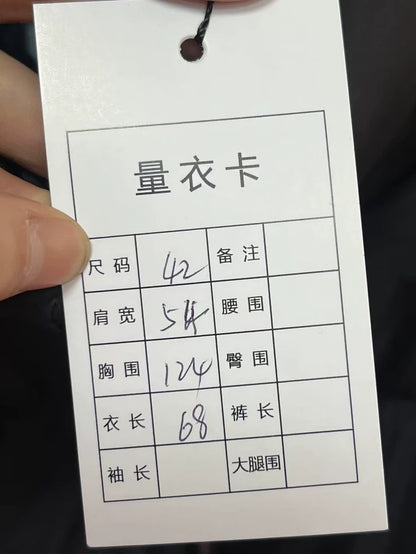 量衣卡
尺码 42 备注
肩宽 54 腰围
胸围 124 臀围
衣长 68 裤长
袖长 大腿围